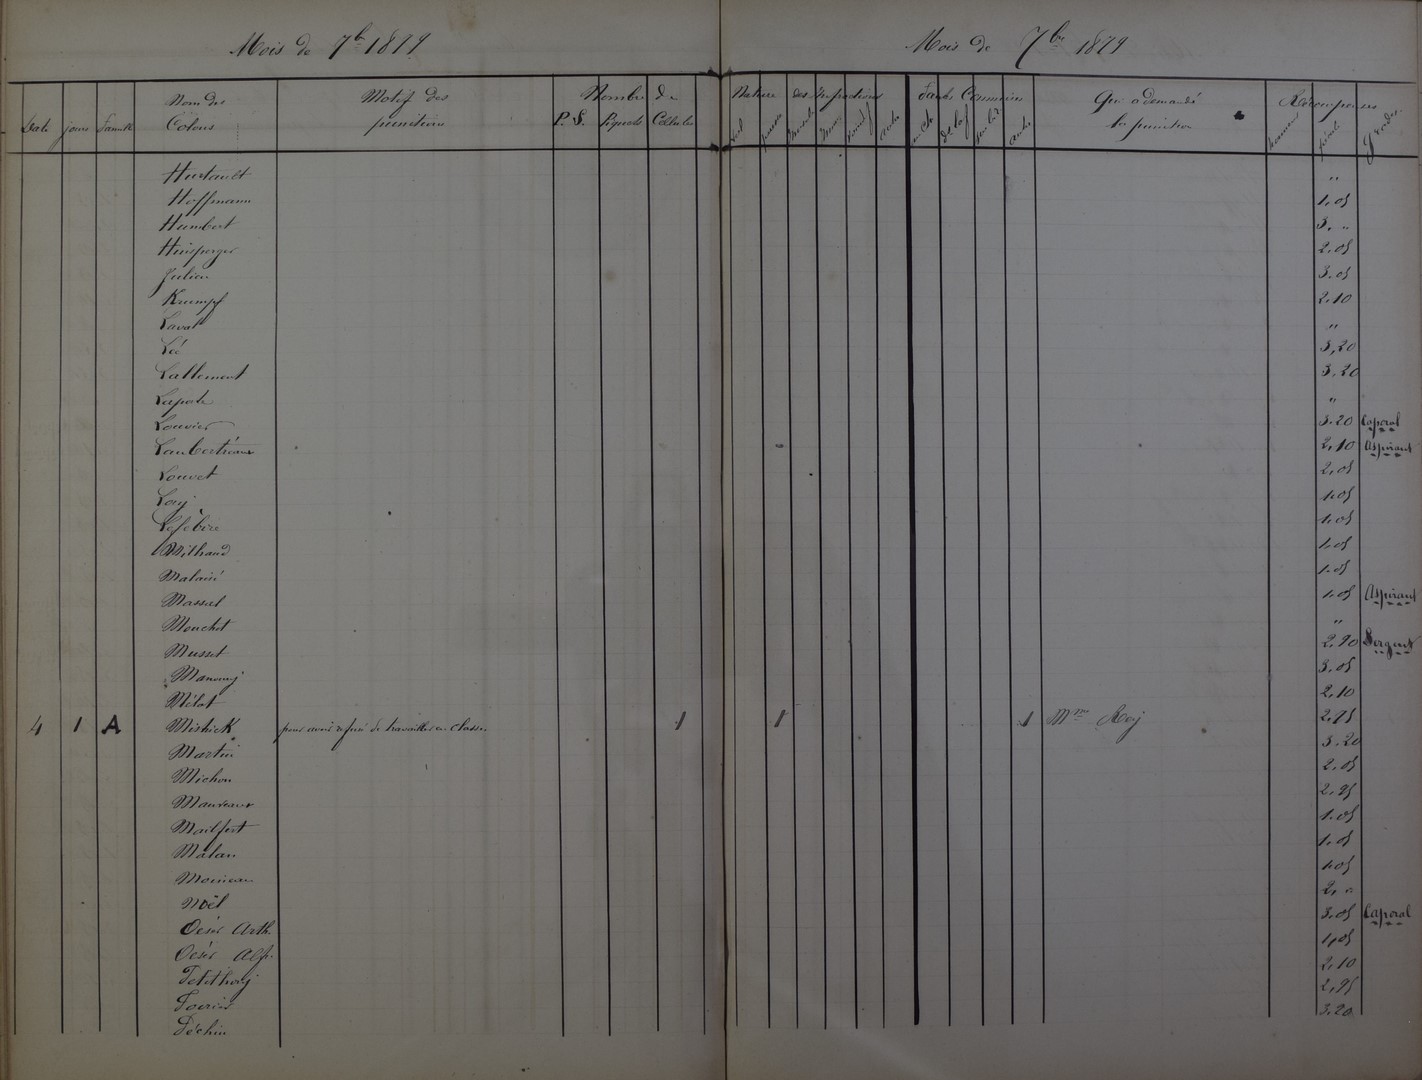 Mois de 7b 1879
Mois de 7bre 1879
Date jours Famille Nom des Colons Motif des punitions Nombre de P.S. Piquets Cellules
Nature des Infractions Fautes Commises Qui a demandé la punition Récompenses Grades
Hustault "
Hoffmann 1,05
Humbert 3, "
Huisperger 2,05
Julien 3,05
Krumpf 2,10
Laval "
Léé 3,20
Lallemant 3,20
Lapate "
Louvier 3,20 Caporal
Laubertréaux 2,10 Aspirant
Louvet 2,05
Louj 1,05
Lefèbvre 1,05
Milhaud 1,05
Malaisé 1,05
Massal 1,05 Aspirant
Mouchot "
Musset 2,20 Sergent
Manouvj 3,05
Mélot 2,10
4 1 A Mishick pour avoir refusé de travailler en classe 1 1 1 Mme Roj 2,95
Martin 3,20
Michon 2,05
Manseaux 2,95
Mailfert 1,05
Malan 1,05
Moineau 1,05
Noël 2, "
Oésér Arth. 3,05 Caporal
Oésér Alf. 1,05
Petithory 2,10
Poirier 2,95
Péchin 3,20